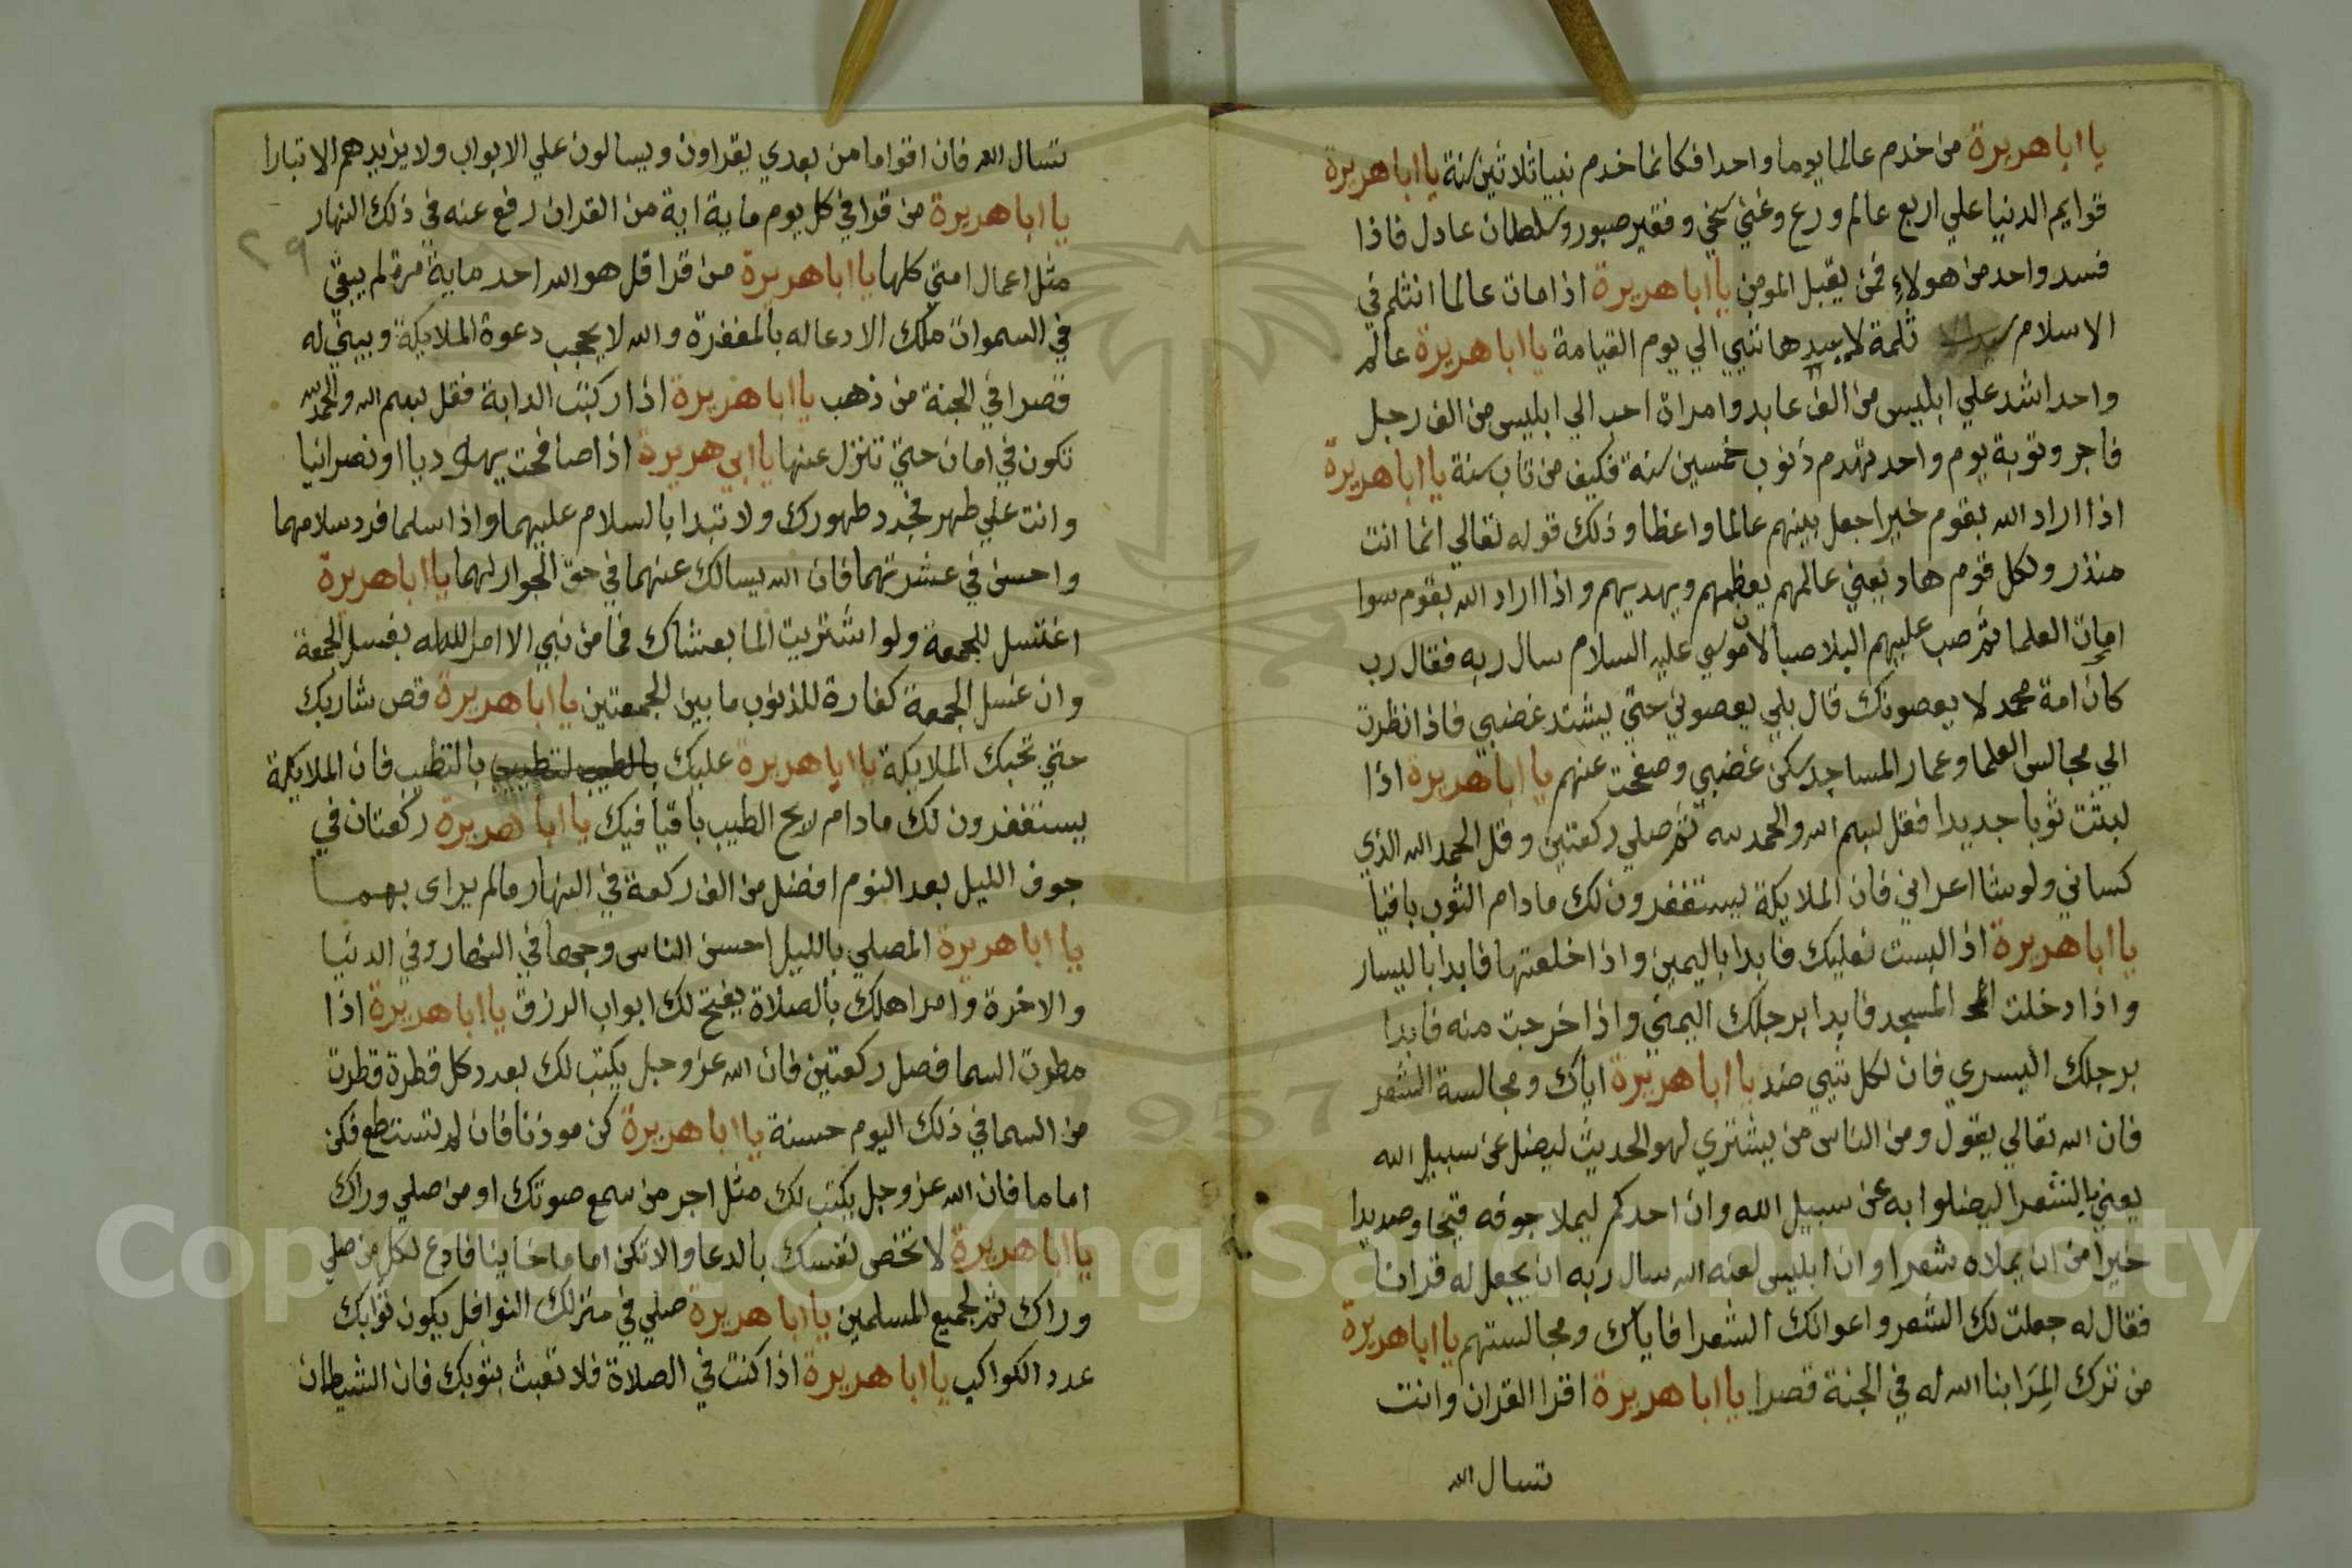 يا ابا هريرة من خدم عالما يوما واحدا فكانما خدم نبيا ثلاثين سنة يا ابا هريرة
قوايم الدنيا علي اربع عالم ورع وغني سخي وفقير صبور وسلطان عادل فاذا
فسد واحد من هولاء فمن يقبل المومن يا ابا هريرة اذا مات عالما انثلم في
الاسلام ثلمة لا يسدها شي الي يوم القيامة يا ابا هريرة عالم
واحد اشد علي ابليس من الف عابد وامراة احب الي ابليس من الف رجل
فاجر وتوبة يوم واحد تهدم ذنوب خمسين سنة فكيف من تاب سنة يا ابا هريرة
اذا اراد الله بقوم خيرا جعل بينهم عالما واعظا وذلك قوله تعالي انما انت
منذر ولكل قوم هاد يعني عالمهم يعظهم ويهديهم واذا اراد الله بقوم سوا
امات العلما ثم صب عليهم البلا صبا لان موسي عليه السلام سال ربه فقال رب
كان امة محمد لا يعصونك قال بلي يعصوني حتي يشتد غضبي فاذا نظرت
الي مجالس العلما وعمار المساجد سكن غضبي وصفحت عنهم يا ابا هريرة اذا
لبثت ثوبا جديدا فقل بسم الله والحمد لله ثم صلي ركعتين وقل الحمد الله الذي
كساني ولو شا اعراني فان الملايكة يستغفرون لك مادام الثوب باقيا
يا ابا هريرة اذ البست نعليك فابدا باليمين واذا خلعتها فابدا باليسار
واذا دخلت المسجد فابدا برجلك اليمني واذا خرجت منه فابدا
برجلك اليسري فان لكل شي ضد يا ابا هريرة اياك ومجالسة الشعر
فان الله تعالي يقول ومن الناس من يشتري لهو الحديث ليضل عن سبيل الله
يعني بالشعرا ليضلوا به عن سبيل الله وان احدكم ليملا جوفه قيحا وصديدا
خيرا من ان يملاه شعرا وان ابليس لعنه الله سال ربه ان يجعل له قرانا
فقال له جعلت لك الشعر واعوانك الشعرا فاياك ومجالستهم يا ابا هريرة
من ترك المرا بنا الله له في الجنة قصرا يا ابا هريرة اقرا القران وانت
تسال الله
تسال الله فان اقواما من بعدي يقراون ويسالون علي الابواب ولا يزيدهم الا تبارا
يا ابا هريرة من قرا في كل يوم ماية اية من القران رفع عنه في ذلك النهار
٢٩
مثل اعمال امتي كلها يا ابا هريرة من قرا قل هو الله احد ماية مرة لم يبقي
في السموات ملك الا دعا له بالمغفرة والله لا يحجب دعوة الملايكة ويبني له
قصرا في الجنة من ذهب يا ابا هريرة اذا ركبت الدابة فقل بسم الله والحمد لله
تكون في امان حتي تنزل عنها يا ابي هريرة اذا صافحت يهوديا او نصرانيا
وانت علي طهر فجدد طهورك ولا تبدا بالسلام عليهما واذا سلما فرد سلامهما
واحسن في عشرتهما فان الله يسالك عنهما في حق الجوار لهما يا ابا هريرة
اغتسل للجمعة ولو اشتريت الما بعشاك فما من نبي الا امر الله له بغسل الجمعة
وان غسل الجمعة كفارة للذنوب ما بين الجمعتين يا ابا هريرة قص شاربك
حتي تحبك الملايكة يا ابا هريرة عليك بالطيب لتطييب بالتطيب فان الملايكة
يستغفرون لك مادام ريح الطيب باقيا فيك يا ابا هريرة ركعتان في
جوف الليل بعد النوم افضل من الف ركعة في النهار مالم يراي بهما
يا ابا هريرة المصلي بالليل احسن الناس وجها في النهار وفي الدنيا
والاخرة وامر اهلك بالصلاة يفتح لك ابواب الرزق يا ابا هريرة اذا
مطرت السما فصل ركعتين فان الله عز وجل يكتب لك بعدد كل قطرة قطرت
من السما في ذلك اليوم حسنة يا ابا هريرة كن موذنا فان لم تستطع فكن
اماما فان الله عز وجل يكتب لك مثل اجر من سمع صوتك او من صلي وراك
يا ابا هريرة لا تخص نفسك بالدعا والا تكن اماما خاينا فادع لكل من صلي
وراك ثم لجميع المسلمين يا ابا هريرة صلي في منزلك النوافل يكون ثوابك
عدد الكواكب يا ابا هريرة اذا كنت في الصلاة فلا تعبث بثوبك فان الشيطان
Copyright © King Saud University
1957